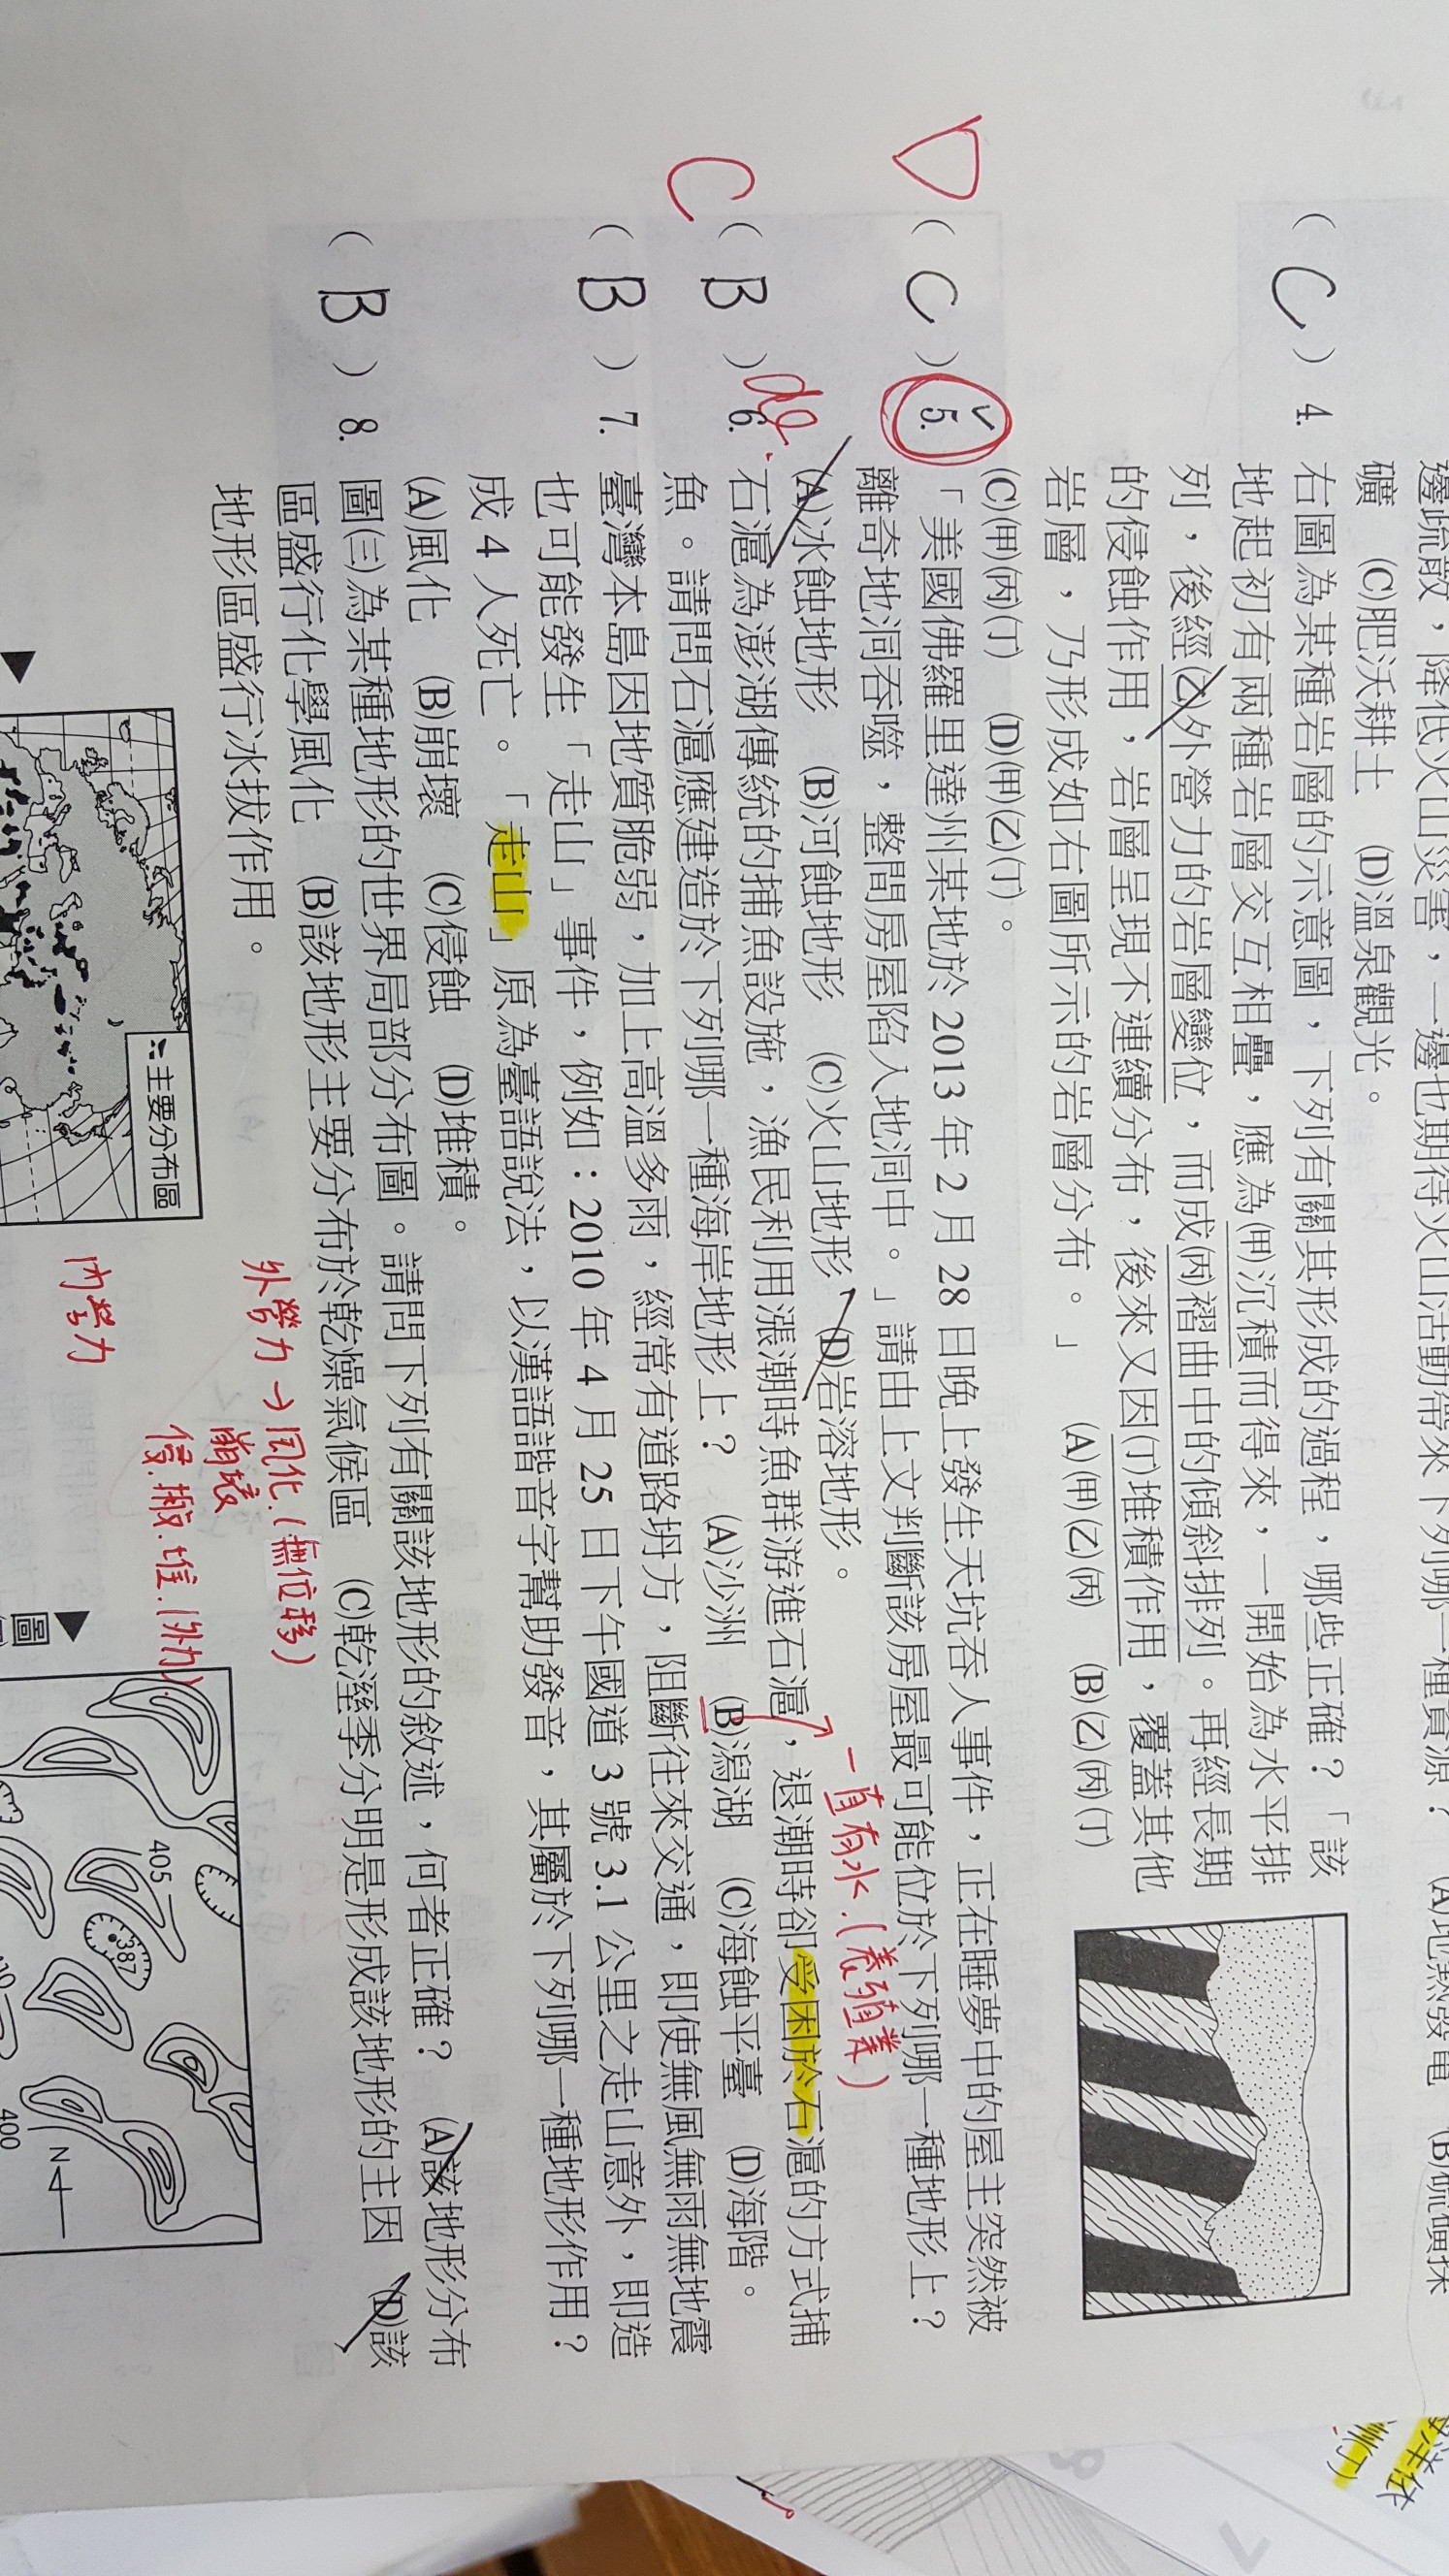 邊疏散，降低火山災害，一邊也期待火山活動帶來下列哪一種資源？ (A)地熱發電 (B)硫磺採
礦 (C)肥沃耕土 (D)溫泉觀光。
( C ) 4. 右圖為某種岩層的示意圖，下列有關其形成的過程，哪些正確？「該
地起初有兩種岩層交互相疊，應為(甲)沉積而得來，一開始為水平排
列，後經(乙)外營力的岩層變位，而成(丙)褶曲中的傾斜排列。再經長期
的侵蝕作用，岩層呈現不連續分布，後來又因(丁)堆積作用，覆蓋其他
岩層，乃形成如右圖所示的岩層分布。」 (A)(甲)(乙)(丙) (B)(乙)(丙)(丁)
(C)(甲)(丙)(丁) (D)(甲)(乙)(丁)。
D ( C ) 5. 「美國佛羅里達州某地於 2013 年 2 月 28 日晚上發生天坑吞人事件，正在睡夢中的屋主突然被
離奇地洞吞噬，整間房屋陷入地洞中。」請由上文判斷該房屋最可能位於下列哪一種地形上？
(A)冰蝕地形 (B)河蝕地形 (C)火山地形 (D)岩溶地形。
一直有水.(養殖業)
C ( B ) 6. 石滬為澎湖傳統的捕魚設施，漁民利用漲潮時魚群游進石滬，退潮時卻受困於石滬的方式捕
魚。請問石滬應建造於下列哪一種海岸地形上？ (A)沙洲 (B)潟湖 (C)海蝕平臺 (D)海階。
( B ) 7. 臺灣本島因地質脆弱，加上高溫多雨，經常有道路坍方，阻斷往來交通，即使無風無雨無地震
也可能發生「走山」事件，例如：2010 年 4 月 25 日下午國道 3 號 3.1 公里之走山意外，即造
成 4 人死亡。「走山」原為臺語說法，以漢語諧音字幫助發音，其屬於下列哪一種地形作用？
(A)風化 (B)崩壞 (C)侵蝕 (D)堆積。
( B ) 8. 圖(三)為某種地形的世界局部分布圖。請問下列有關該地形的敘述，何者正確？ (A)該地形分布
區盛行化學風化 (B)該地形主要分布於乾燥氣候區 (C)乾溼季分明是形成該地形的主因 (D)該
地形區盛行冰拔作用。
外營力→風化.(無位移)
崩壞
侵.搬.堆.(外力)
內營力
主要分布區
▲
▲圖
405
387
400
N